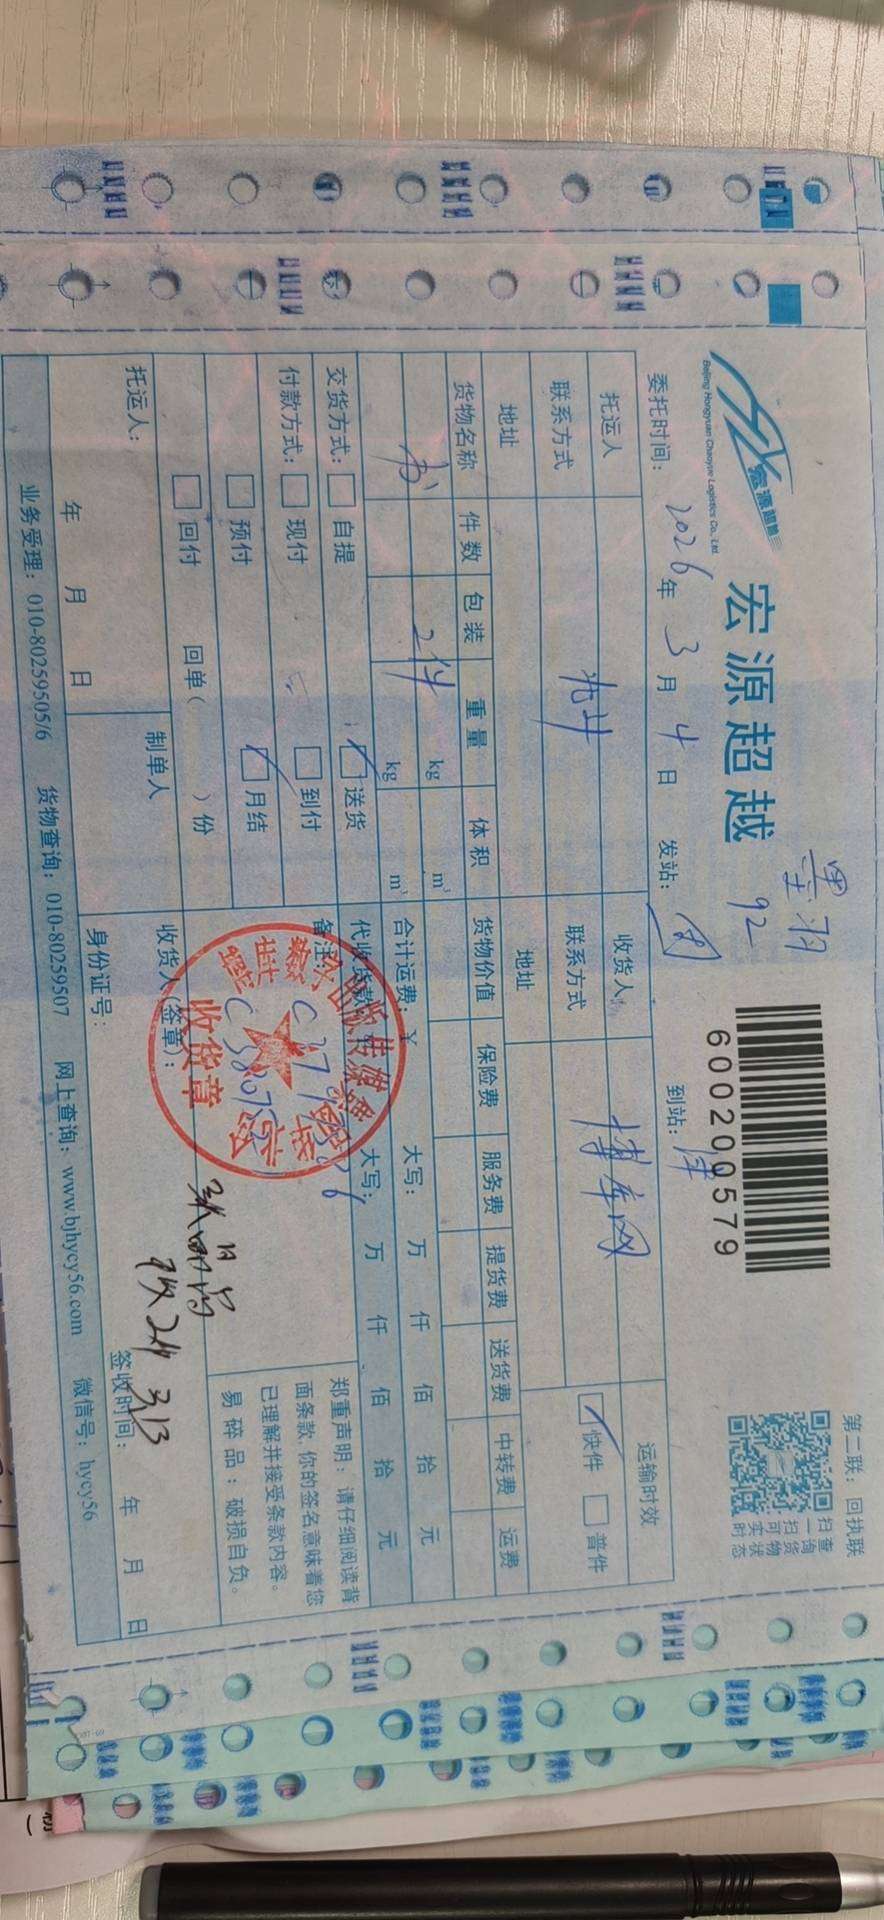 宏源超越
Beijing Hongyuan Chaoyue Logistics Co., Ltd.
宏源超越
墨羽
92
600200579
第二联：回执联
扫一扫可实时
查询货物状态
委托时间：2026年3月4日
发站：
到站：津
托运人
收货人
运输时效
联系方式
联系方式
博库网
快件
普件
地址
地址
货物名称 件数 包装 重量 体积 货物价值 保险费 服务费 提货费 送货费 中转费 运费
书 2件 kg m³
kg m³
合计运费：¥ 大写： 万 仟 佰 拾 元
交货方式： 自提 送货
代收货款 大写： 万 仟 佰 拾 元
付款方式： 现付 到付
预付 月结
回付 回单（ ）份
备注
收货章
郑重声明：请仔细阅读背
面条款，你的签名意味着您
已理解并接受条款内容。
易碎品：破损自负。
托运人：
年 月 日
制单人
收货人（签章）：
收2件 3/3
身份证号：
签收时间： 年 月 日
业务受理：010-80259505/6 货物查询：010-80259507 网上查询：www.bjhycy56.com 微信号：hycy56